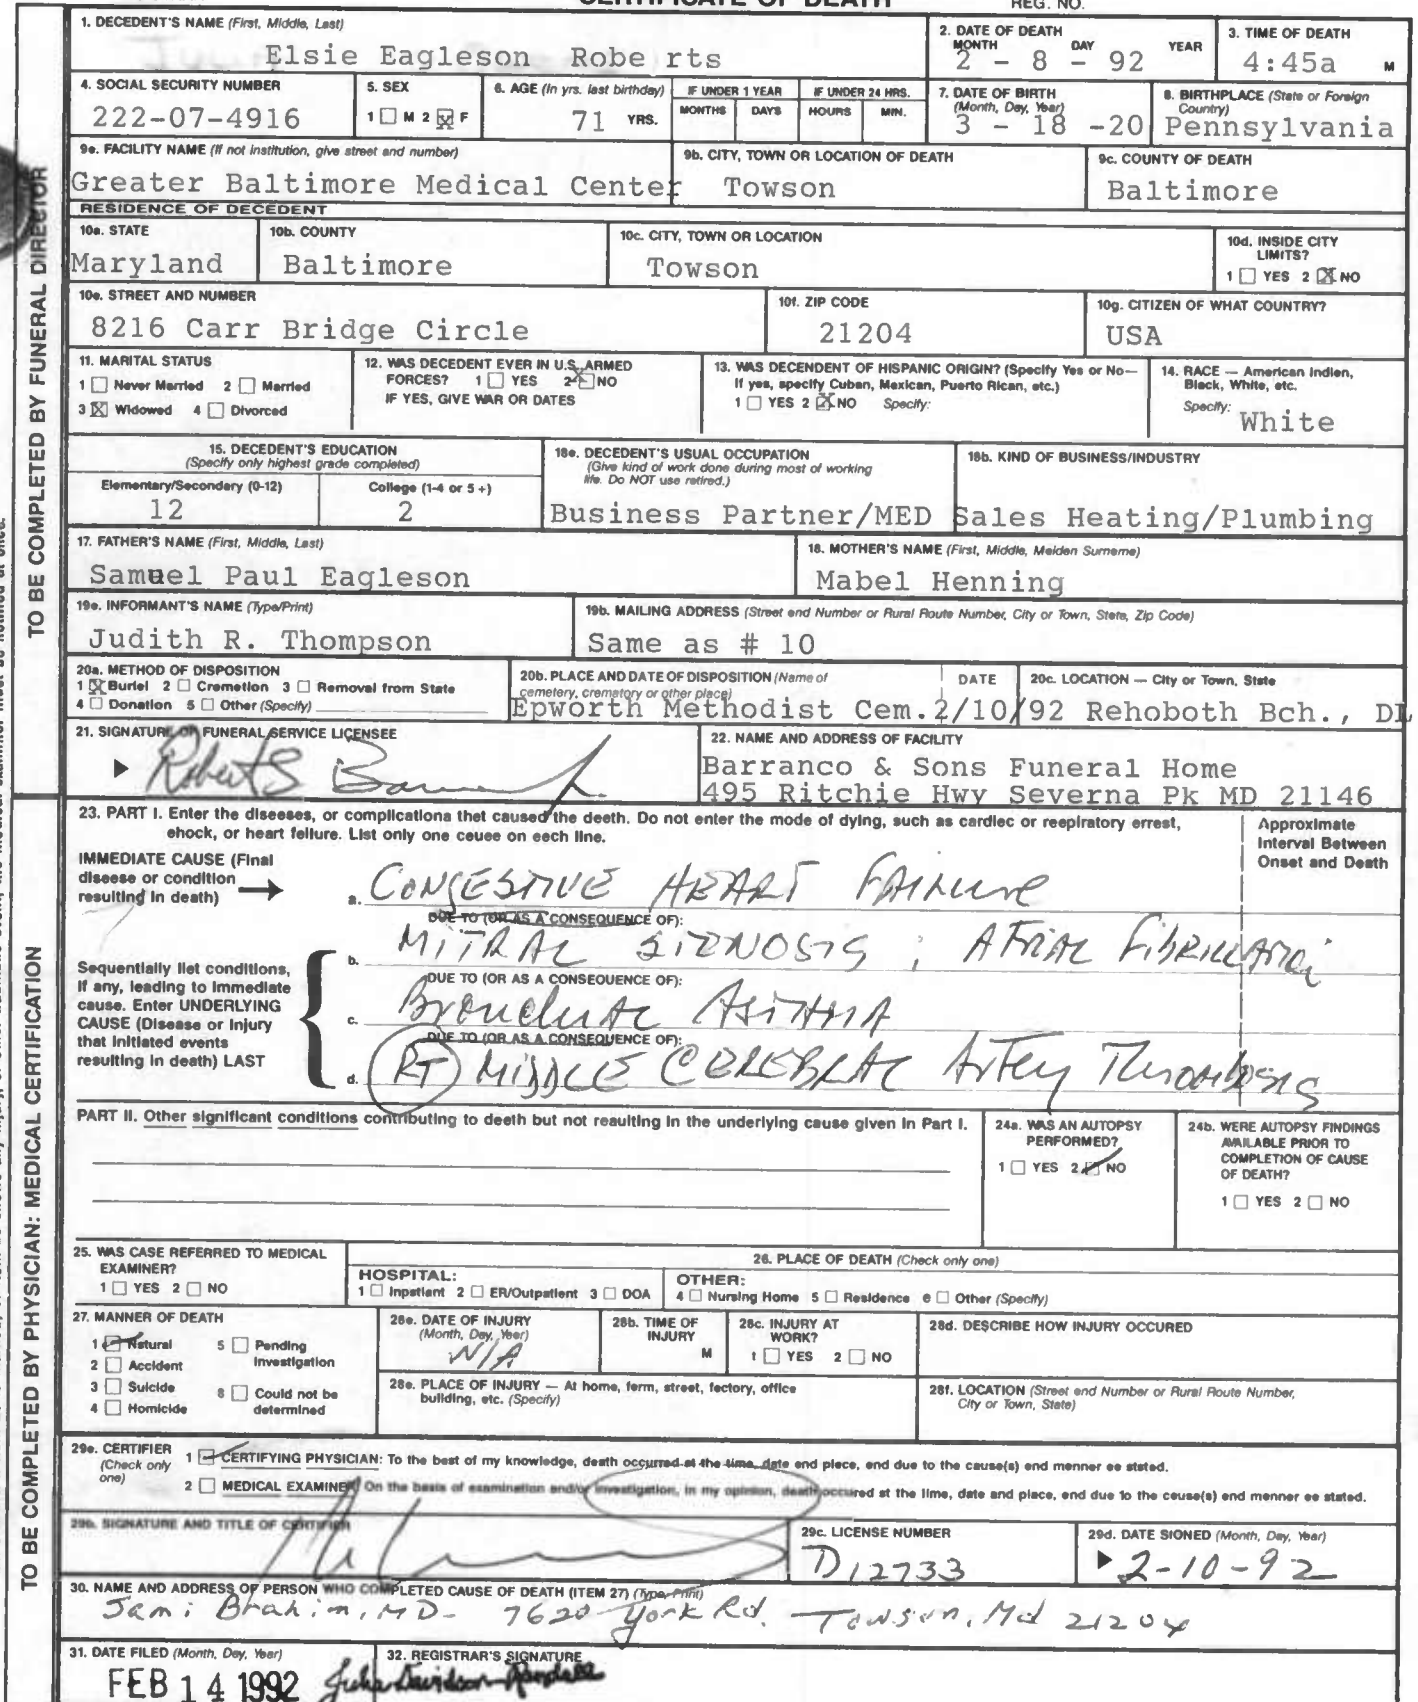 CERTIFICATE OF DEATH
REG. NO.
1. DECEDENT'S NAME (First, Middle, Last)
Elsie Eagleson Robe rts
2. DATE OF DEATH
MONTH DAY YEAR
2 - 8 - 92
3. TIME OF DEATH
4:45a M
4. SOCIAL SECURITY NUMBER
222-07-4916
5. SEX
1 ☐ M 2 ☒ F
6. AGE (In yrs. last birthday)
71 YRS.
IF UNDER 1 YEAR
MONTHS DAYS
IF UNDER 24 HRS.
HOURS MIN.
7. DATE OF BIRTH
(Month, Day, Year)
3 - 18 -20
8. BIRTHPLACE (State or Foreign
Country)
Pennsylvania
9a. FACILITY NAME (If not institution, give street and number)
Greater Baltimore Medical Center
9b. CITY, TOWN OR LOCATION OF DEATH
Towson
9c. COUNTY OF DEATH
Baltimore
RESIDENCE OF DECEDENT
10a. STATE
Maryland
10b. COUNTY
Baltimore
10c. CITY, TOWN OR LOCATION
Towson
10d. INSIDE CITY
LIMITS?
1 ☐ YES 2 ☒ NO
10e. STREET AND NUMBER
8216 Carr Bridge Circle
10f. ZIP CODE
21204
10g. CITIZEN OF WHAT COUNTRY?
USA
11. MARITAL STATUS
1 ☐ Never Married 2 ☐ Married
3 ☒ Widowed 4 ☐ Divorced
12. WAS DECEDENT EVER IN U.S. ARMED
FORCES? 1 ☐ YES 2 ☒ NO
IF YES, GIVE WAR OR DATES
13. WAS DECENDENT OF HISPANIC ORIGIN? (Specify Yes or No—
If yes, specify Cuban, Mexican, Puerto Rican, etc.)
1 ☐ YES 2 ☒ NO Specify:
14. RACE — American Indian,
Black, White, etc.
Specify: White
15. DECEDENT'S EDUCATION
(Specify only highest grade completed)
Elementary/Secondary (0-12)
12
College (1-4 or 5 +)
2
16a. DECEDENT'S USUAL OCCUPATION
(Give kind of work done during most of working
life. Do NOT use retired.)
Business Partner/MED
16b. KIND OF BUSINESS/INDUSTRY
Sales Heating/Plumbing
17. FATHER'S NAME (First, Middle, Last)
Samuel Paul Eagleson
18. MOTHER'S NAME (First, Middle, Maiden Surname)
Mabel Henning
19a. INFORMANT'S NAME (Type/Print)
Judith R. Thompson
19b. MAILING ADDRESS (Street and Number or Rural Route Number, City or Town, State, Zip Code)
Same as # 10
20a. METHOD OF DISPOSITION
1 ☒ Burial 2 ☐ Cremation 3 ☐ Removal from State
4 ☐ Donation 5 ☐ Other (Specify)
20b. PLACE AND DATE OF DISPOSITION (Name of
cemetery, crematory or other place)
DATE
Epworth Methodist Cem. 2/10/92
20c. LOCATION — City or Town, State
Rehoboth Bch., DL
21. SIGNATURE OF FUNERAL SERVICE LICENSEE
Robert S
22. NAME AND ADDRESS OF FACILITY
Barranco & Sons Funeral Home
495 Ritchie Hwy Severna Pk MD 21146
TO BE COMPLETED BY FUNERAL DIRECTOR
23. PART I. Enter the diseases, or complications that caused the death. Do not enter the mode of dying, such as cardiac or respiratory arrest,
shock, or heart failure. List only one cause on each line.
Approximate
Interval Between
Onset and Death
IMMEDIATE CAUSE (Final
disease or condition
resulting in death)
a. CONGESTIVE HEART FAILURE
DUE TO (OR AS A CONSEQUENCE OF):
b. MITRAL STENOSIS ; ATRIAL FIBRILLATION
DUE TO (OR AS A CONSEQUENCE OF):
c. Bronchial ASTHMA
DUE TO (OR AS A CONSEQUENCE OF):
d. RT MIDDLE CEREBRAL Artery Thrombosis
Sequentially list conditions,
if any, leading to immediate
cause. Enter UNDERLYING
CAUSE (Disease or injury
that initiated events
resulting in death) LAST
PART II. Other significant conditions contributing to death but not resulting in the underlying cause given in Part I.
24a. WAS AN AUTOPSY
PERFORMED?
1 ☐ YES 2 ☑ NO
24b. WERE AUTOPSY FINDINGS
AVAILABLE PRIOR TO
COMPLETION OF CAUSE
OF DEATH?
1 ☐ YES 2 ☐ NO
25. WAS CASE REFERRED TO MEDICAL
EXAMINER?
1 ☐ YES 2 ☐ NO
26. PLACE OF DEATH (Check only one)
HOSPITAL:
1 ☐ Inpatient 2 ☐ ER/Outpatient 3 ☐ DOA
OTHER:
4 ☐ Nursing Home 5 ☐ Residence 6 ☐ Other (Specify)
27. MANNER OF DEATH
1 ☑ Natural 5 ☐ Pending
Investigation
2 ☐ Accident
3 ☐ Suicide 8 ☐ Could not be
determined
4 ☐ Homicide
28a. DATE OF INJURY
(Month, Day, Year)
N/A
28b. TIME OF
INJURY
M
28c. INJURY AT
WORK?
1 ☐ YES 2 ☐ NO
28d. DESCRIBE HOW INJURY OCCURED
28e. PLACE OF INJURY — At home, farm, street, factory, office
building, etc. (Specify)
28f. LOCATION (Street and Number or Rural Route Number,
City or Town, State)
29a. CERTIFIER
(Check only
one)
1 ☑ CERTIFYING PHYSICIAN: To the best of my knowledge, death occurred at the time, date and place, and due to the cause(s) and manner as stated.
2 ☐ MEDICAL EXAMINER: On the basis of examination and/or investigation, in my opinion, death occured at the time, date and place, and due to the cause(s) and manner as stated.
29b. SIGNATURE AND TITLE OF CERTIFIER
29c. LICENSE NUMBER
D12733
29d. DATE SIGNED (Month, Day, Year)
2-10-92
30. NAME AND ADDRESS OF PERSON WHO COMPLETED CAUSE OF DEATH (ITEM 27) (Type, Print)
Sami Brahim, MD- 7620 York Rd. Towson, Md 21204
31. DATE FILED (Month, Day, Year)
FEB 14 1992
32. REGISTRAR'S SIGNATURE
Julia Davidson-Randall
TO BE COMPLETED BY PHYSICIAN: MEDICAL CERTIFICATION